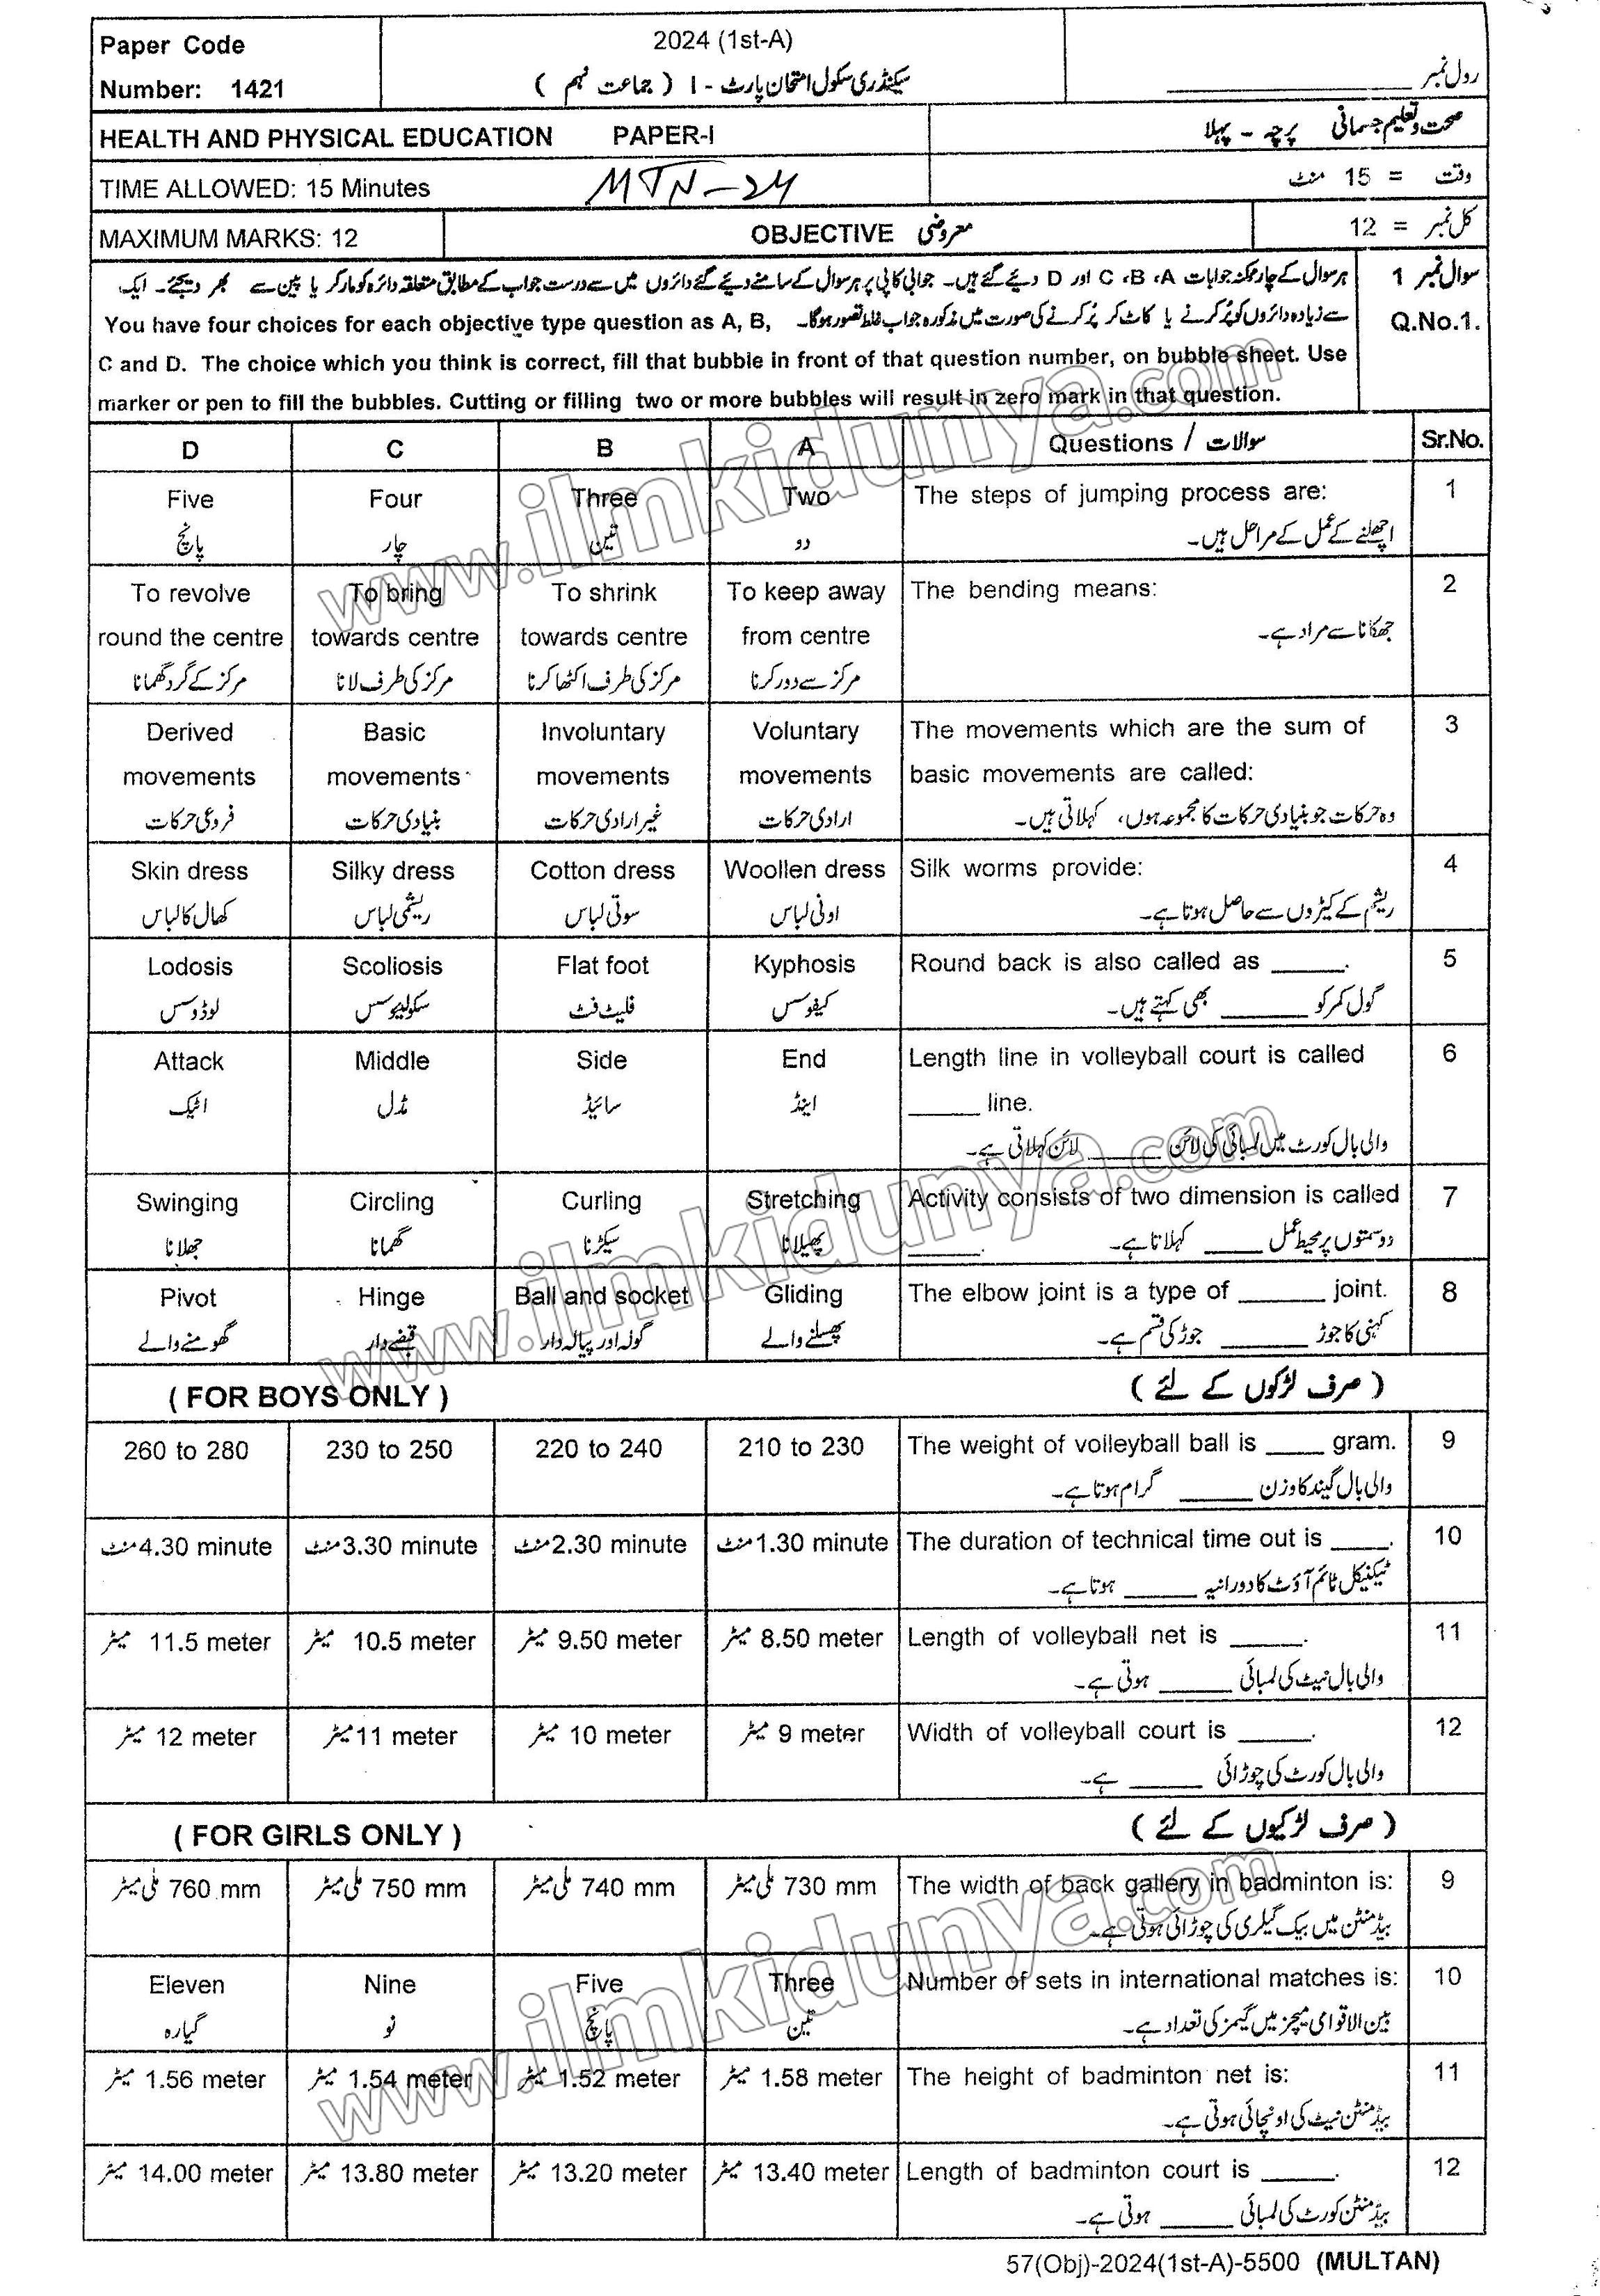 Paper Code
Number: 1421
2024 (1st-A)
سیکنڈری سکول امتحان پارٹ - I ( جماعت نہم )
رول نمبر ____________
HEALTH AND PHYSICAL EDUCATION PAPER-I
صحت و تعلیم جسمانی پرچہ - پہلا
TIME ALLOWED: 15 Minutes
MTN-24
وقت = 15 منٹ
MAXIMUM MARKS: 12
OBJECTIVE معروضی
کل نمبر = 12
سوال نمبر 1
Q.No.1.
ہر سوال کے چار ممکنہ جوابات A، B، C اور D دیئے گئے ہیں۔ جوابی کاپی پر ہر سوال کے سامنے دیئے گئے دائروں میں سے درست جواب کے مطابق متعلقہ دائرہ کو مارکر یا پین سے بھر دیجئے۔ ایک
سے زیادہ دائروں کو پُر کرنے یا کاٹ کر پُر کرنے کی صورت میں مذکورہ جواب غلط تصور ہوگا۔ You have four choices for each objective type question as A, B,
C and D. The choice which you think is correct, fill that bubble in front of that question number, on bubble sheet. Use
marker or pen to fill the bubbles. Cutting or filling two or more bubbles will result in zero mark in that question.
D C B A Questions / سوالات Sr.No.
Five Four Three Two The steps of jumping process are: 1
پانچ چار تین دو اچھلنے کے عمل کے مراحل ہیں۔
To revolve To bring To shrink To keep away The bending means: 2
round the centre towards centre towards centre from centre
مرکز کے گرد گھمانا مرکز کی طرف لانا مرکز کی طرف اکٹھا کرنا مرکز سے دور کرنا جھکانا سے مراد ہے۔
Derived Basic Involuntary Voluntary The movements which are the sum of 3
movements movements movements movements basic movements are called:
فروعی حرکات بنیادی حرکات غیر ارادی حرکات ارادی حرکات وہ حرکات جو بنیادی حرکات کا مجموعہ ہوں، کہلاتی ہیں۔
Skin dress Silky dress Cotton dress Woollen dress Silk worms provide: 4
کھال کا لباس ریشمی لباس سوتی لباس اونی لباس ریشم کے کیڑوں سے حاصل ہوتا ہے۔
Lodosis Scoliosis Flat foot Kyphosis Round back is also called as _____. 5
لوڈوسس سکولیوسس فلیٹ فٹ کیفوسس گول کمر کو ______ بھی کہتے ہیں۔
Attack Middle Side End Length line in volleyball court is called 6
_____ line.
اٹیک مڈل سائیڈ اینڈ والی بال کورٹ میں لمبائی کی لائن _____ لائن کہلاتی ہے۔
Swinging Circling Curling Stretching Activity consists of two dimension is called 7
_____.
جھلانا گھمانا سیکڑنا پھیلانا دو سمتوں پر محیط عمل ____ کہلاتا ہے۔
Pivot Hinge Ball and socket Gliding The elbow joint is a type of ______ joint. 8
گھومنے والے قبضے دار گولہ اور پیالہ دار پھسلنے والے کہنی کا جوڑ ______ جوڑ کی قسم ہے۔
( FOR BOYS ONLY ) ( صرف لڑکوں کے لئے )
260 to 280 230 to 250 220 to 240 210 to 230 The weight of volleyball ball is ____ gram. 9
والی بال گیند کا وزن _____ گرام ہوتا ہے۔
4.30 minute منٹ 3.30 minute منٹ 2.30 minute منٹ 1.30 minute منٹ The duration of technical time out is ____. 10
ٹیکنیکل ٹائم آؤٹ کا دورانیہ _____ ہوتا ہے۔
11.5 meter میٹر 10.5 meter میٹر 9.50 meter میٹر 8.50 meter میٹر Length of volleyball net is _____. 11
والی بال نیٹ کی لمبائی _____ ہوتی ہے۔
12 meter میٹر 11 meter میٹر 10 meter میٹر 9 meter میٹر Width of volleyball court is _____. 12
والی بال کورٹ کی چوڑائی _____ ہے۔
( FOR GIRLS ONLY ) ( صرف لڑکیوں کے لئے )
760 mm ملی میٹر 750 mm ملی میٹر 740 mm ملی میٹر 730 mm ملی میٹر The width of back gallery in badminton is: 9
بیڈمنٹن میں بیک گیلری کی چوڑائی ہوتی ہے۔
Eleven Nine Five Three Number of sets in international matches is: 10
گیارہ نو پانچ تین بین الاقوامی میچز میں گیمز کی تعداد ہے۔
1.56 meter میٹر 1.54 meter میٹر 1.52 meter میٹر 1.58 meter میٹر The height of badminton net is: 11
بیڈمنٹن نیٹ کی اونچائی ہوتی ہے۔
14.00 meter میٹر 13.80 meter میٹر 13.20 meter میٹر 13.40 meter میٹر Length of badminton court is _____. 12
بیڈمنٹن کورٹ کی لمبائی _____ ہوتی ہے۔
57(Obj)-2024(1st-A)-5500 (MULTAN)
www.ilmkidunya.com
www.ilmkidunya.com
www.ilmkidunya.com